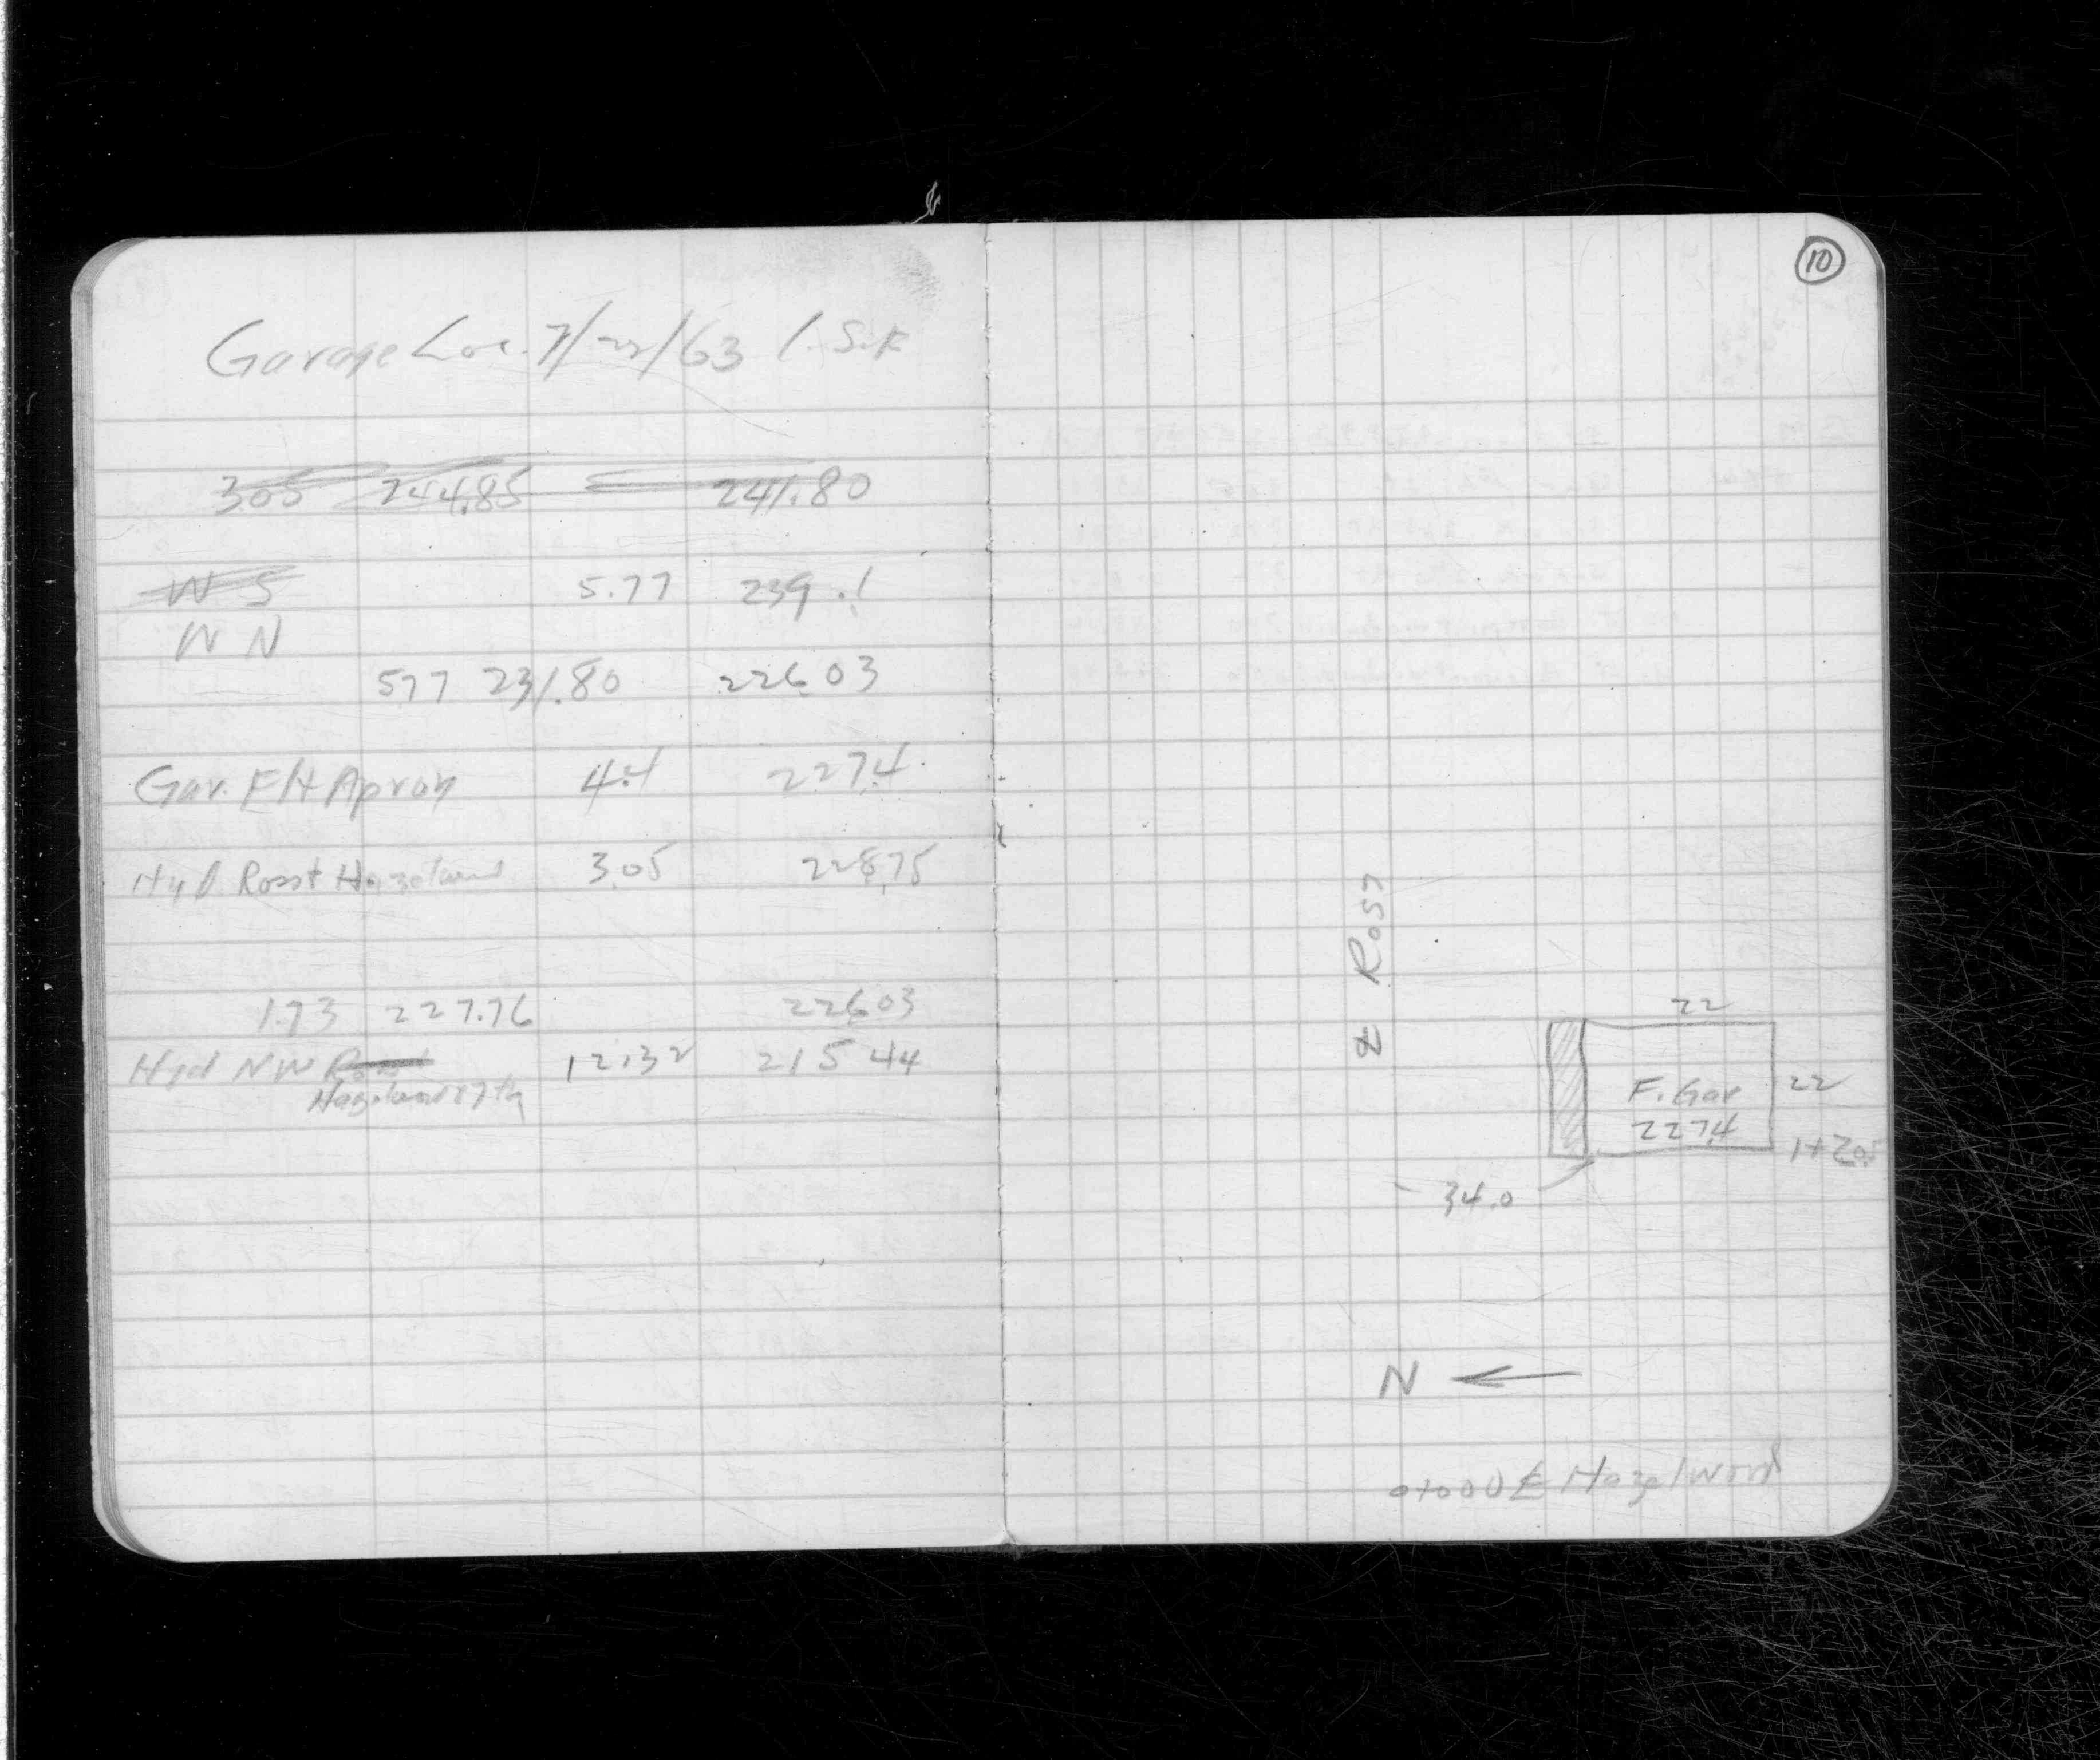 Garage Loc. 7/22/63 /. S.F.
3.05 244.85 241.80
W S 5.77 239.1
W N
577 231.80 226.03
Gar. F/H Apron 4.4 227.4
Hyd Ross + Hazelwood 3.05 228.75
1.73 227.76 226.03
Hyd NW Ross 12.32 215.44
Hazelwood 87th
10
℄ Ross
22
F. Gar 22
227.4
1+20.5
34.0
N
0+000 ℄ Hazelwood